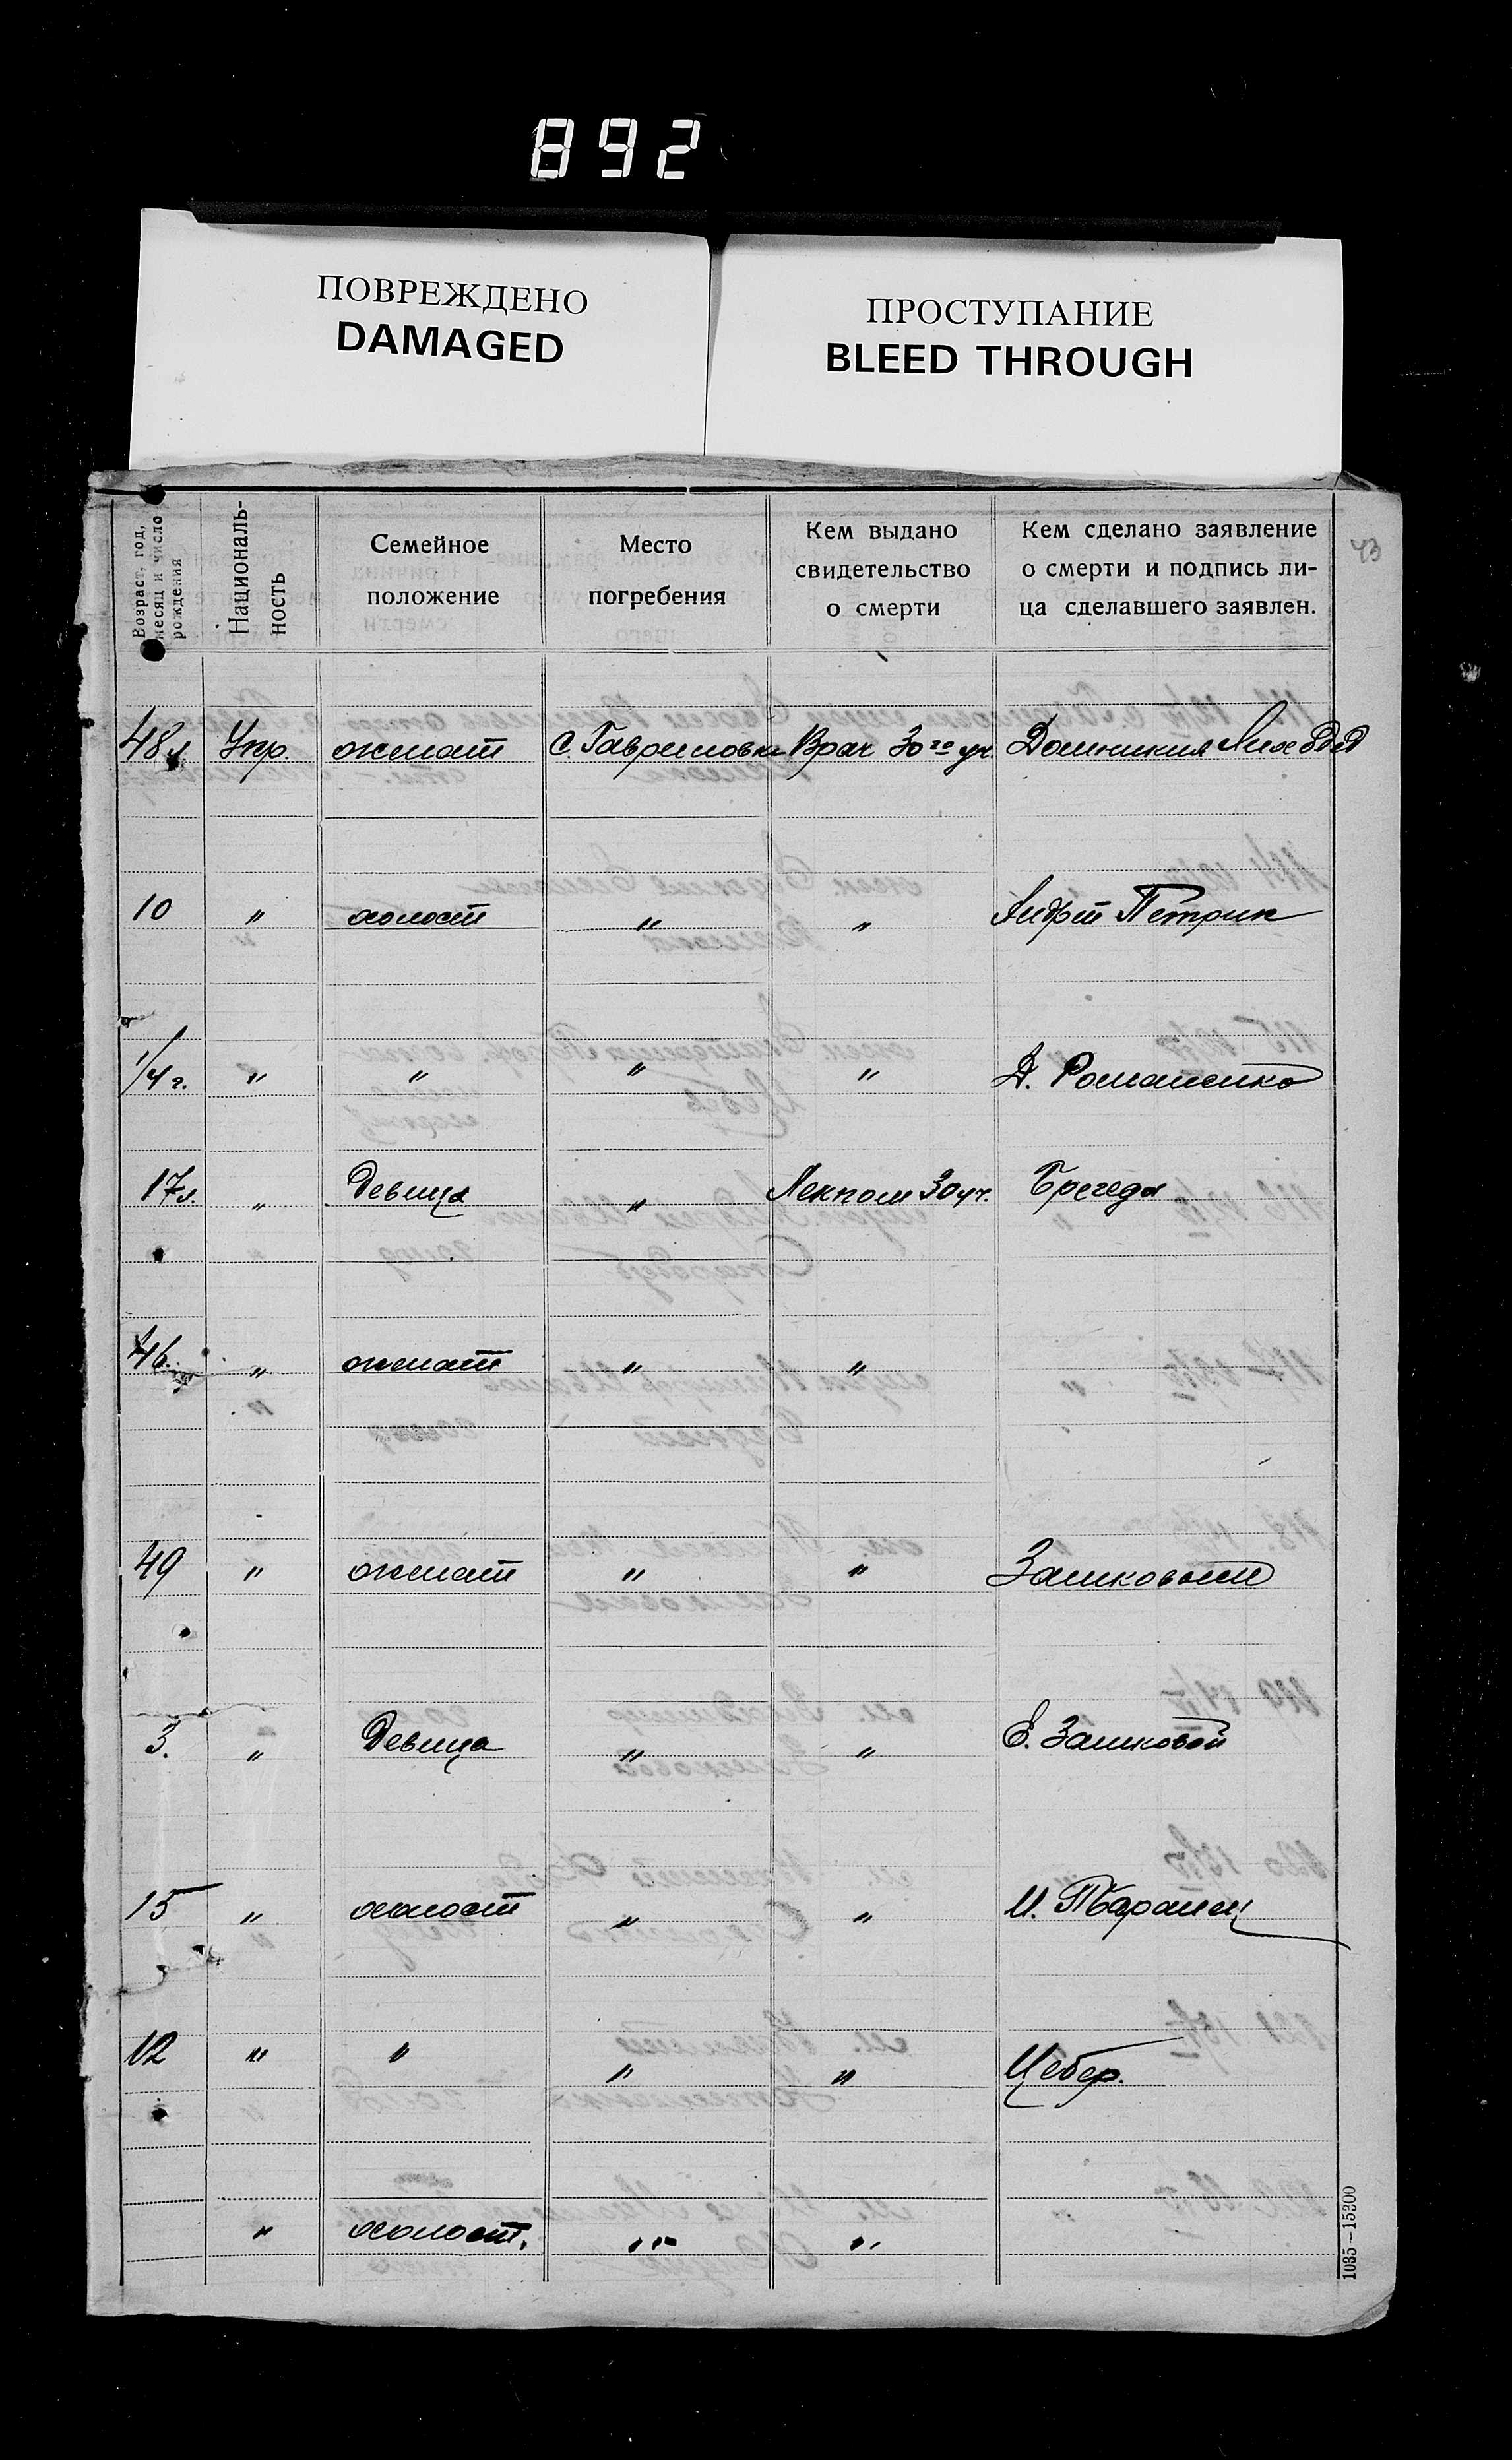 892
ПОВРЕЖДЕНО
DAMAGED
ПРОСТУПАНИЕ
BLEED THROUGH
43
Возраст, год,
месяц и число
рождения
Националь-
ность
Семейное
положение
Место
погребения
Кем выдано
свидетельство
о смерти
Кем сделано заявление
о смерти и подпись ли-
ца сделавшего заявлен.
48 л. Укр. женат С. Гавриловка Врач 30го уч. Домникия
10 " холост " " Петрик
1/4 г. " " " " Д. Романенко
17 л. " Девица " Лекпом 30 уч. Брегеда
46 " женат " "
49 " женат " " Зашковый
3. " Девица " " Е. Зашковой
15 " холост " " И.
12 " " " " Цебер.
" холост. " "
1035—15300